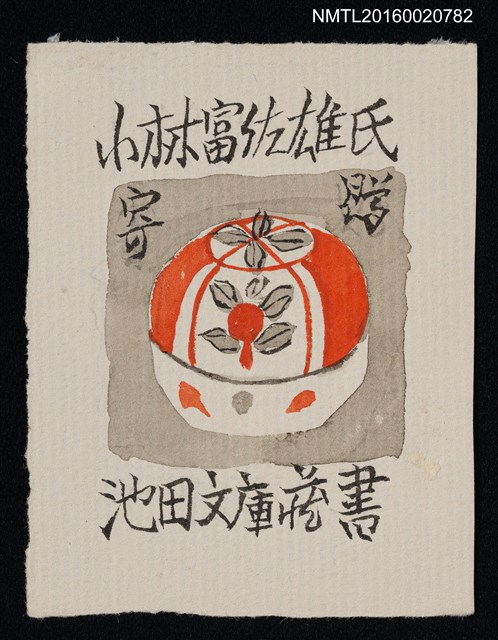 NMTL20160020782
小林富佐雄氏
寄贈
池田文庫蔵書